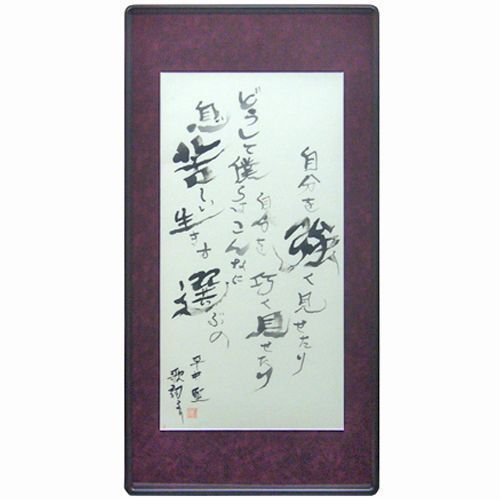 自分を強く見せたり
自分を巧く見せたり
どうして僕らはこんなに
息苦しい生き方選ぶの
平井堅
歌詞より